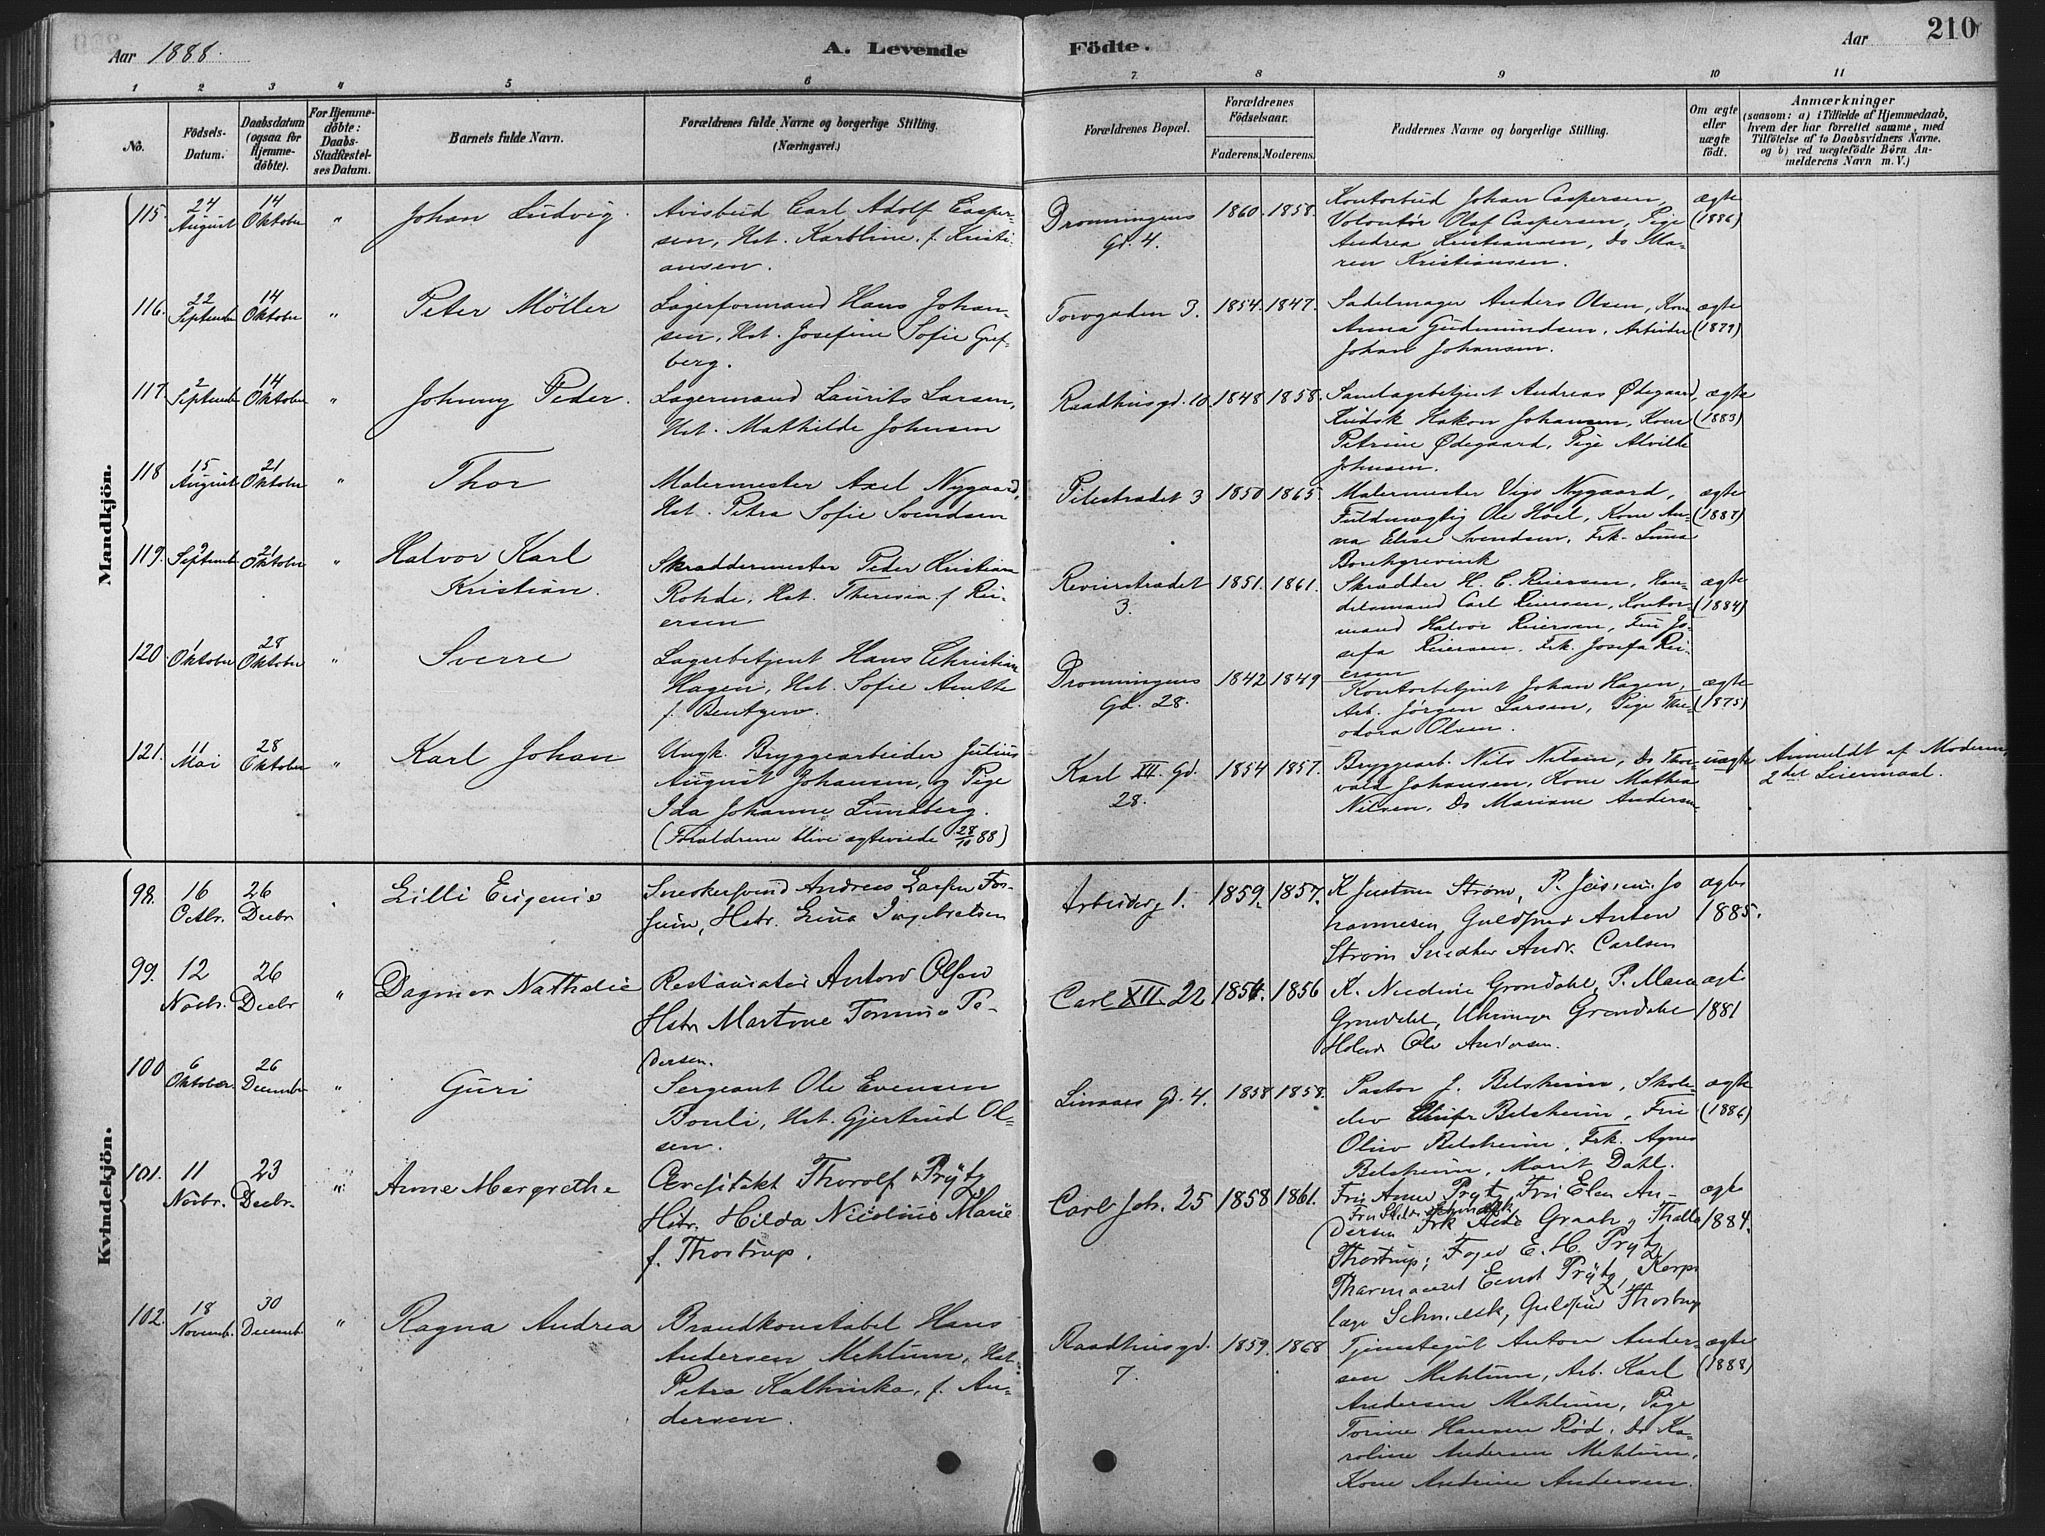 Aar 1888.
A. Levende
Födte.
Aar
210
1 2 3 4 5 6 7 8 9 10 11
No.
Födsels-
Datum.
Daabsdatum
(ogsaa for
Hjemme-
döbte).
For Hjemme-
döbte:
Daabs-
Stadfæstel-
ses Datum.
Barnets fulde Navn.
Forældrenes fulde Navne og borgerlige Stilling.
(Næringsvei.)
Forældrenes Bopæl.
Forældrenes
Födselsaar.
Faderens. Moderens.
Faddernes Navne og borgerlige Stilling.
Om ægte
eller
uægte
födt.
Anmærkninger
(saasom: a) i Tilfælde af Hjemmedaab,
hvem der har forrettet samme, med
Tilföielse af to Daabsvidners Navne.
og b) ved uægtefödte Börn An-
melderens Navn m. V.)
Mandkjön.
115. 24 August 14 Oktober " Johan Ludvig.
Avisbud Carl Adolf Casper-
sen, Hst. Karoline f. Kristi-
ansen.
Dronningens
Gd. 4.
1860. 1858.
Kontorbud Johan Caspersen,
Volontør Olaf Caspersen, Pige
Andrea Kristiansen, Do Ma-
ren Kristiansen.
ægte
(1886)
116. 22 September 14 Oktober " Peter Möller
Lagerformand Hans Johan-
sen, Hst. Josefine Sofie Gref-
berg.
Torvgaden 3. 1854. 1847.
Sadelmager Anders Olsen, Kone
Anna Gudmundsen, Arbeider
Johan Johansen.
ægte
(1879)
117. 2 September 14 Oktober " Johnny Peder.
Lagermand Laurits Larsen,
Hst. Mathilde Johnsen
Raadhusgd. 10. 1848 1858.
Samlagsbetjent Andreas Ødegaard,
Kudsk Hakon Johansen, Kone
Petrine Ødegaard, Pige Alvilde
Johnsen.
ægte
(1883)
118 15 August 21 Oktober " Thor
Malermester Axel Nygaard,
Hst. Petra Sofie Svendsen
Pilestrædet 3 1850 1865.
Malermester Vigo Nygaard,
Fuldmægtig Ole Hoel, Kone An-
na Elise Svendsen, Frk.
Borchgrevink
ægte
119. 9 September 21 Oktober " Halvor Karl
Kristian.
Skræddermester Peder Kristian
Rohde, Hst. Theresia f. Rei-
ersen
3.
1851. 1861.
Skrædder H. C. Reiersen, Han-
delsmand Carl Reiersen, Kontor-
mand Halvor Reiersen, Fru Jo-
sefa Reiersen. Frk. Josefa Rei-
ersen
ægte
(1884)
120. 1 Oktober 28 Oktober " Sverre
Lagerbetjent Hans Christian
Hagen, Hst. Sofie Anette
f. Bentzen.
Dronningens
Gd. 28.
1842 1849
Kontorbetjent Johan Hagen,
Arb. Jörgen Larsen, Pige The-
odora Olsen.
ægte
(1875)
121. 11 Mai 28 Oktober " Karl Johan
Ungk. Bryggearbeider Julius
August Johansen, og Pige
Ida Johanne Lundberg.
(Forældrene blive ægteviede 28/10 88)
Karl XII. Gd.
28.
1854 1857.
Bryggearb. Nils Nilsen, Do Thor-
vald Johansen, Kone Mathea
Nilsen, Do Mariane Andersen
uægte
Anmeldt af Moderen,
2det Leiermaal.
Kvindekjön.
98. 16 Octbr. 26 Decbr Lilli Eugenie
Snedkersvend Andreas Larsen Fos-
sum, Hstr. Ingebretsen
Arbiderg 1. 1859. 1857.
K Justine Ström, P. Jo
hannesen, Guldsmed Anton
Ström Snedker Andr. Carlsen
ægte
1885.
99. 12 Novbr. 26 Decbr " Dagmar Nathalie
Restauratør Anton Olsen
Hstr Martine Tomine Pe-
dersen.
Carl XII. 22 1854. 1856
K. Grøndahl, P. Maren
Grøndahl, Uhrmager Grøndahl
Ole Andersen.
ægte
1881
100 6 Oktober 26 December " Guri
Sergeant Ole Evensen
Bonli, Hst. Gjertrud Ol-
sen.
Linaaes Gd. 4. 1858 1858.
Pastor J. Belsheim, Skole-
elev Einar Belsheim, Fru
Olive Belsheim, Frk. Agnes
Belsheim, Marit Dahl.
ægte
(1886)
101. 11 Novbr. 23 Decbr. " Anne Margrethe
Arkitekt Thorolf Prytz
Hstr. Hilda Nicoline Marie
f. Thostrup.
Carl Joh. 25 1858 1861.
Fru Anna Prytz, Fru Elen An-
dersen Frk Graah, Thalla
Thostrup, Foged E. H. Prytz
Pharmaceut Ernst Prytz, Korps
læge Schmelck, Guldsmed Thostrup
ægte
1884.
102. 18 Novemb. 30 Decemb. " Ragna Andrea
Brandkonstabel Hans
Andersen Mehlum, Hst.
Petra Kathinka, f. An-
dersen.
Raadhusgd.
7.
1859. 1868
Tjenestegut Anton Ander-
sen Mehlum, Arb. Karl
Andersen Mehlum, Pige
Torine Hansen Röd, Do Ka-
roline Andersen Mehlum,
Kone Andrine Andersen.
ægte
(1888)